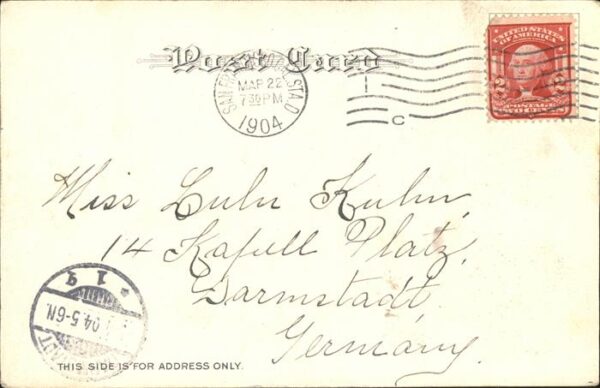 Post Card
UNITED STATES
OF AMERICA
2 2
POSTAGE
TWO CENTS
SAN FRANCISCO, STA. D
MAR 22
7 30 PM
1904
C
Miss Lulu Kuhn,
14 Kapell Platz,
Darmstadt,
Germany.
* 1 q
04.5-6N.
THIS SIDE IS FOR ADDRESS ONLY.